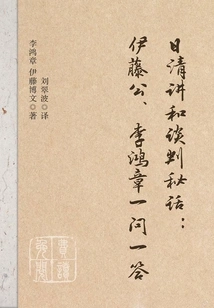 日清讲和谈判秘话：
伊藤公、李鸿章一问一答
李鸿章 伊藤博文 著
刘翠波 译